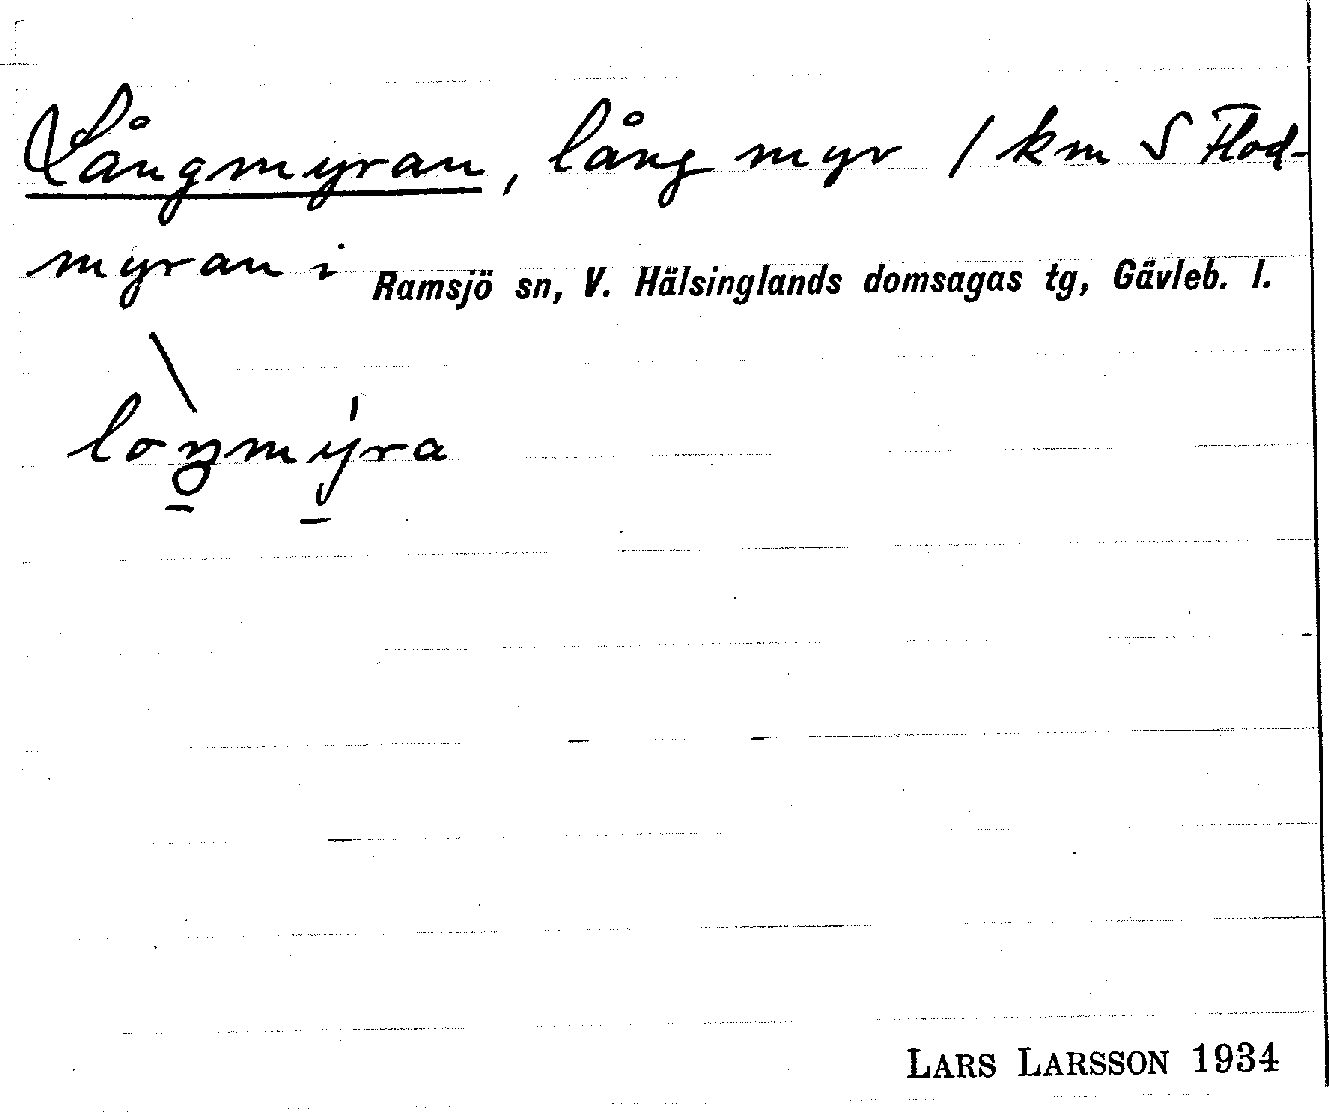 Långmyran, lång myr 1 km S Flod-
myran i Ramsjö sn, V. Hälsinglands domsagas tg, Gävleb. l.
loŋmyra
LARS LARSSON 1934